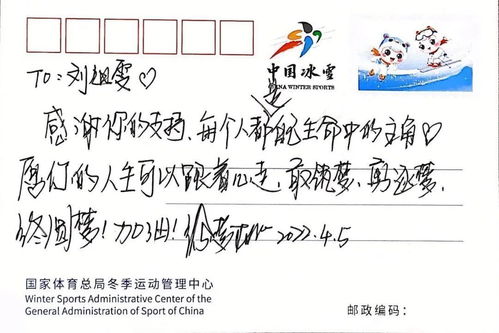 中国冰雪
CHINA WINTER SPORTS
TO：刘祖雯♡
是
感谢你的支持、每个人都能生命中的主角♡
愿你的人生可以跟着心走，敢筑梦，勇逐梦，
终圆梦！加油！ 2022.4.5
国家体育总局冬季运动管理中心
Winter Sports Administrative Center of the
General Administration of Sport of China
邮政编码：